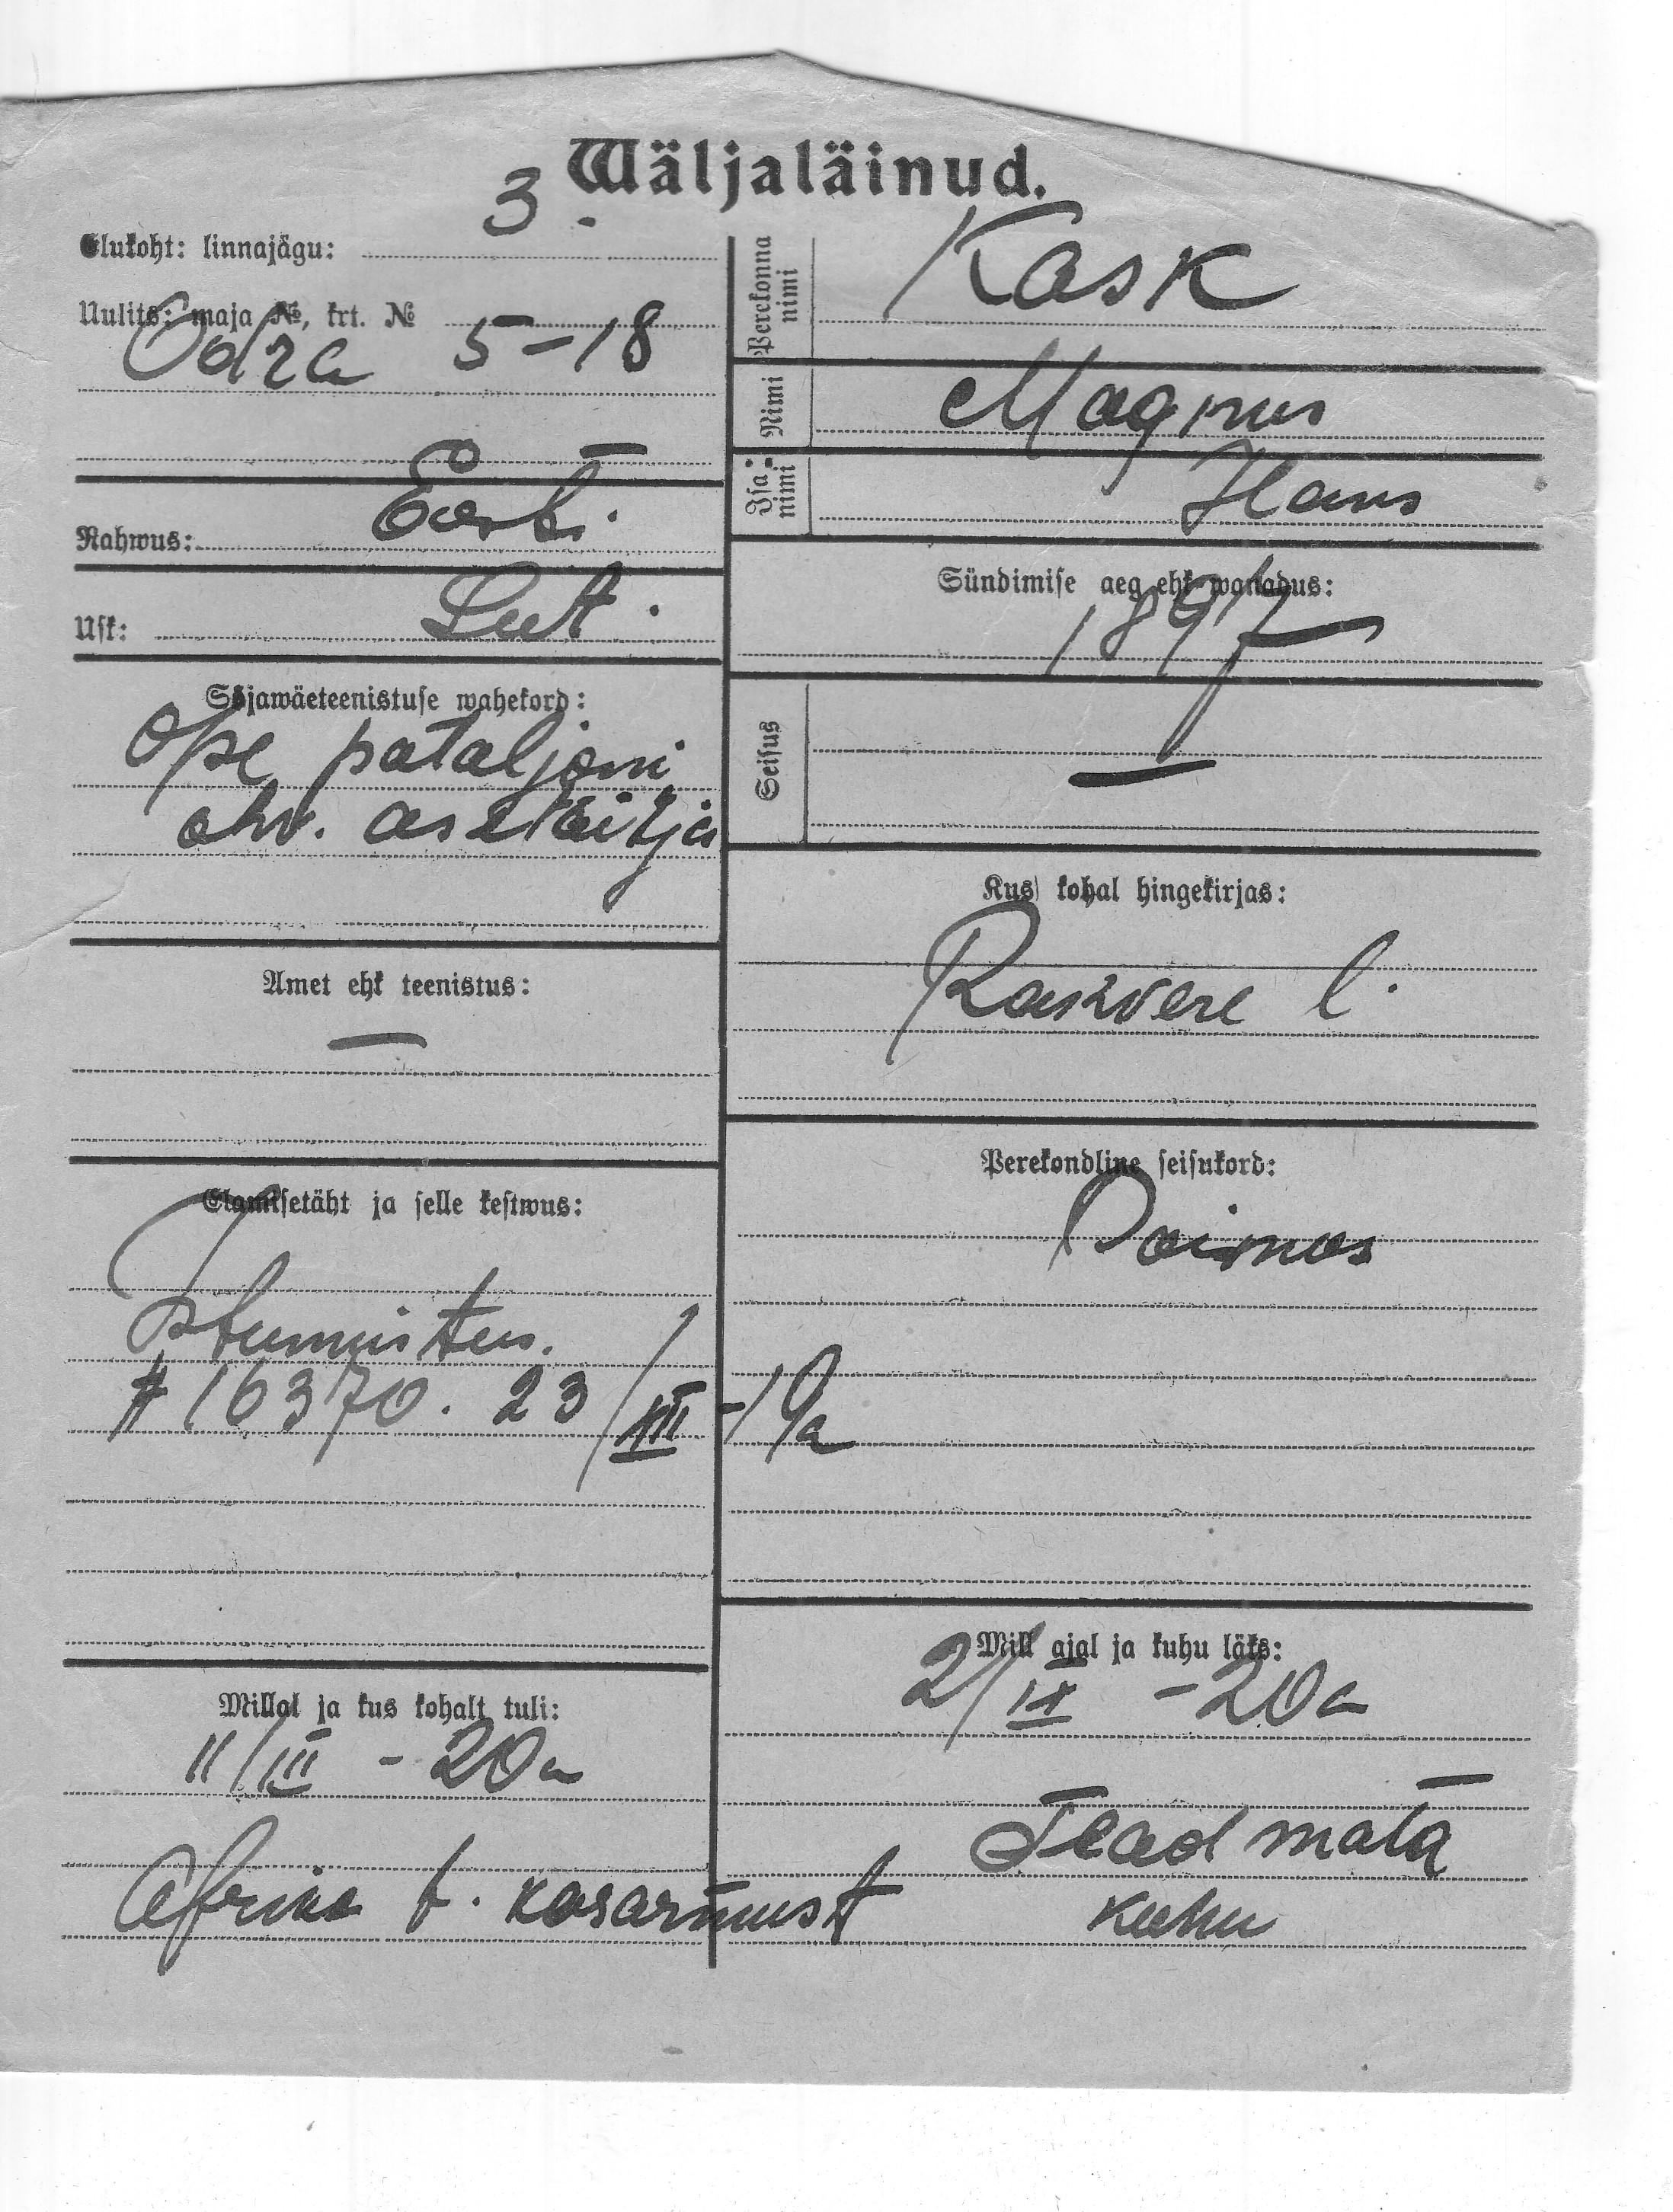 Wäljaläinud.
Elukoht: linnajägu: 3.
Uulits: maja №, krt. №
Odra 5-18
Rahwus: Eesti.
Usk: Lut.
Sõjawäeteenistuse wahekord:
Ope pataljoni
ohv. asetäitja
Amet ehk teenistus:
—
Elamisetäht ja selle kestwus:
Tunnistus.
# 16370. 23/XII-19a
Millal ja kus kohalt tuli:
11/III - 20a
t. kasarmust
Perekonna nimi
Kask
Nimi
Magnus
Isa-nimi
Hans
Sündimise aeg ehk wanadus:
1897
Seisus
—
Kus kohal hingekirjas:
Rakvere l.
Perekondline seisukord:
Poismes
Mill ajal ja kuhu läks:
2/IX - 20a
Teadmata
kuhu